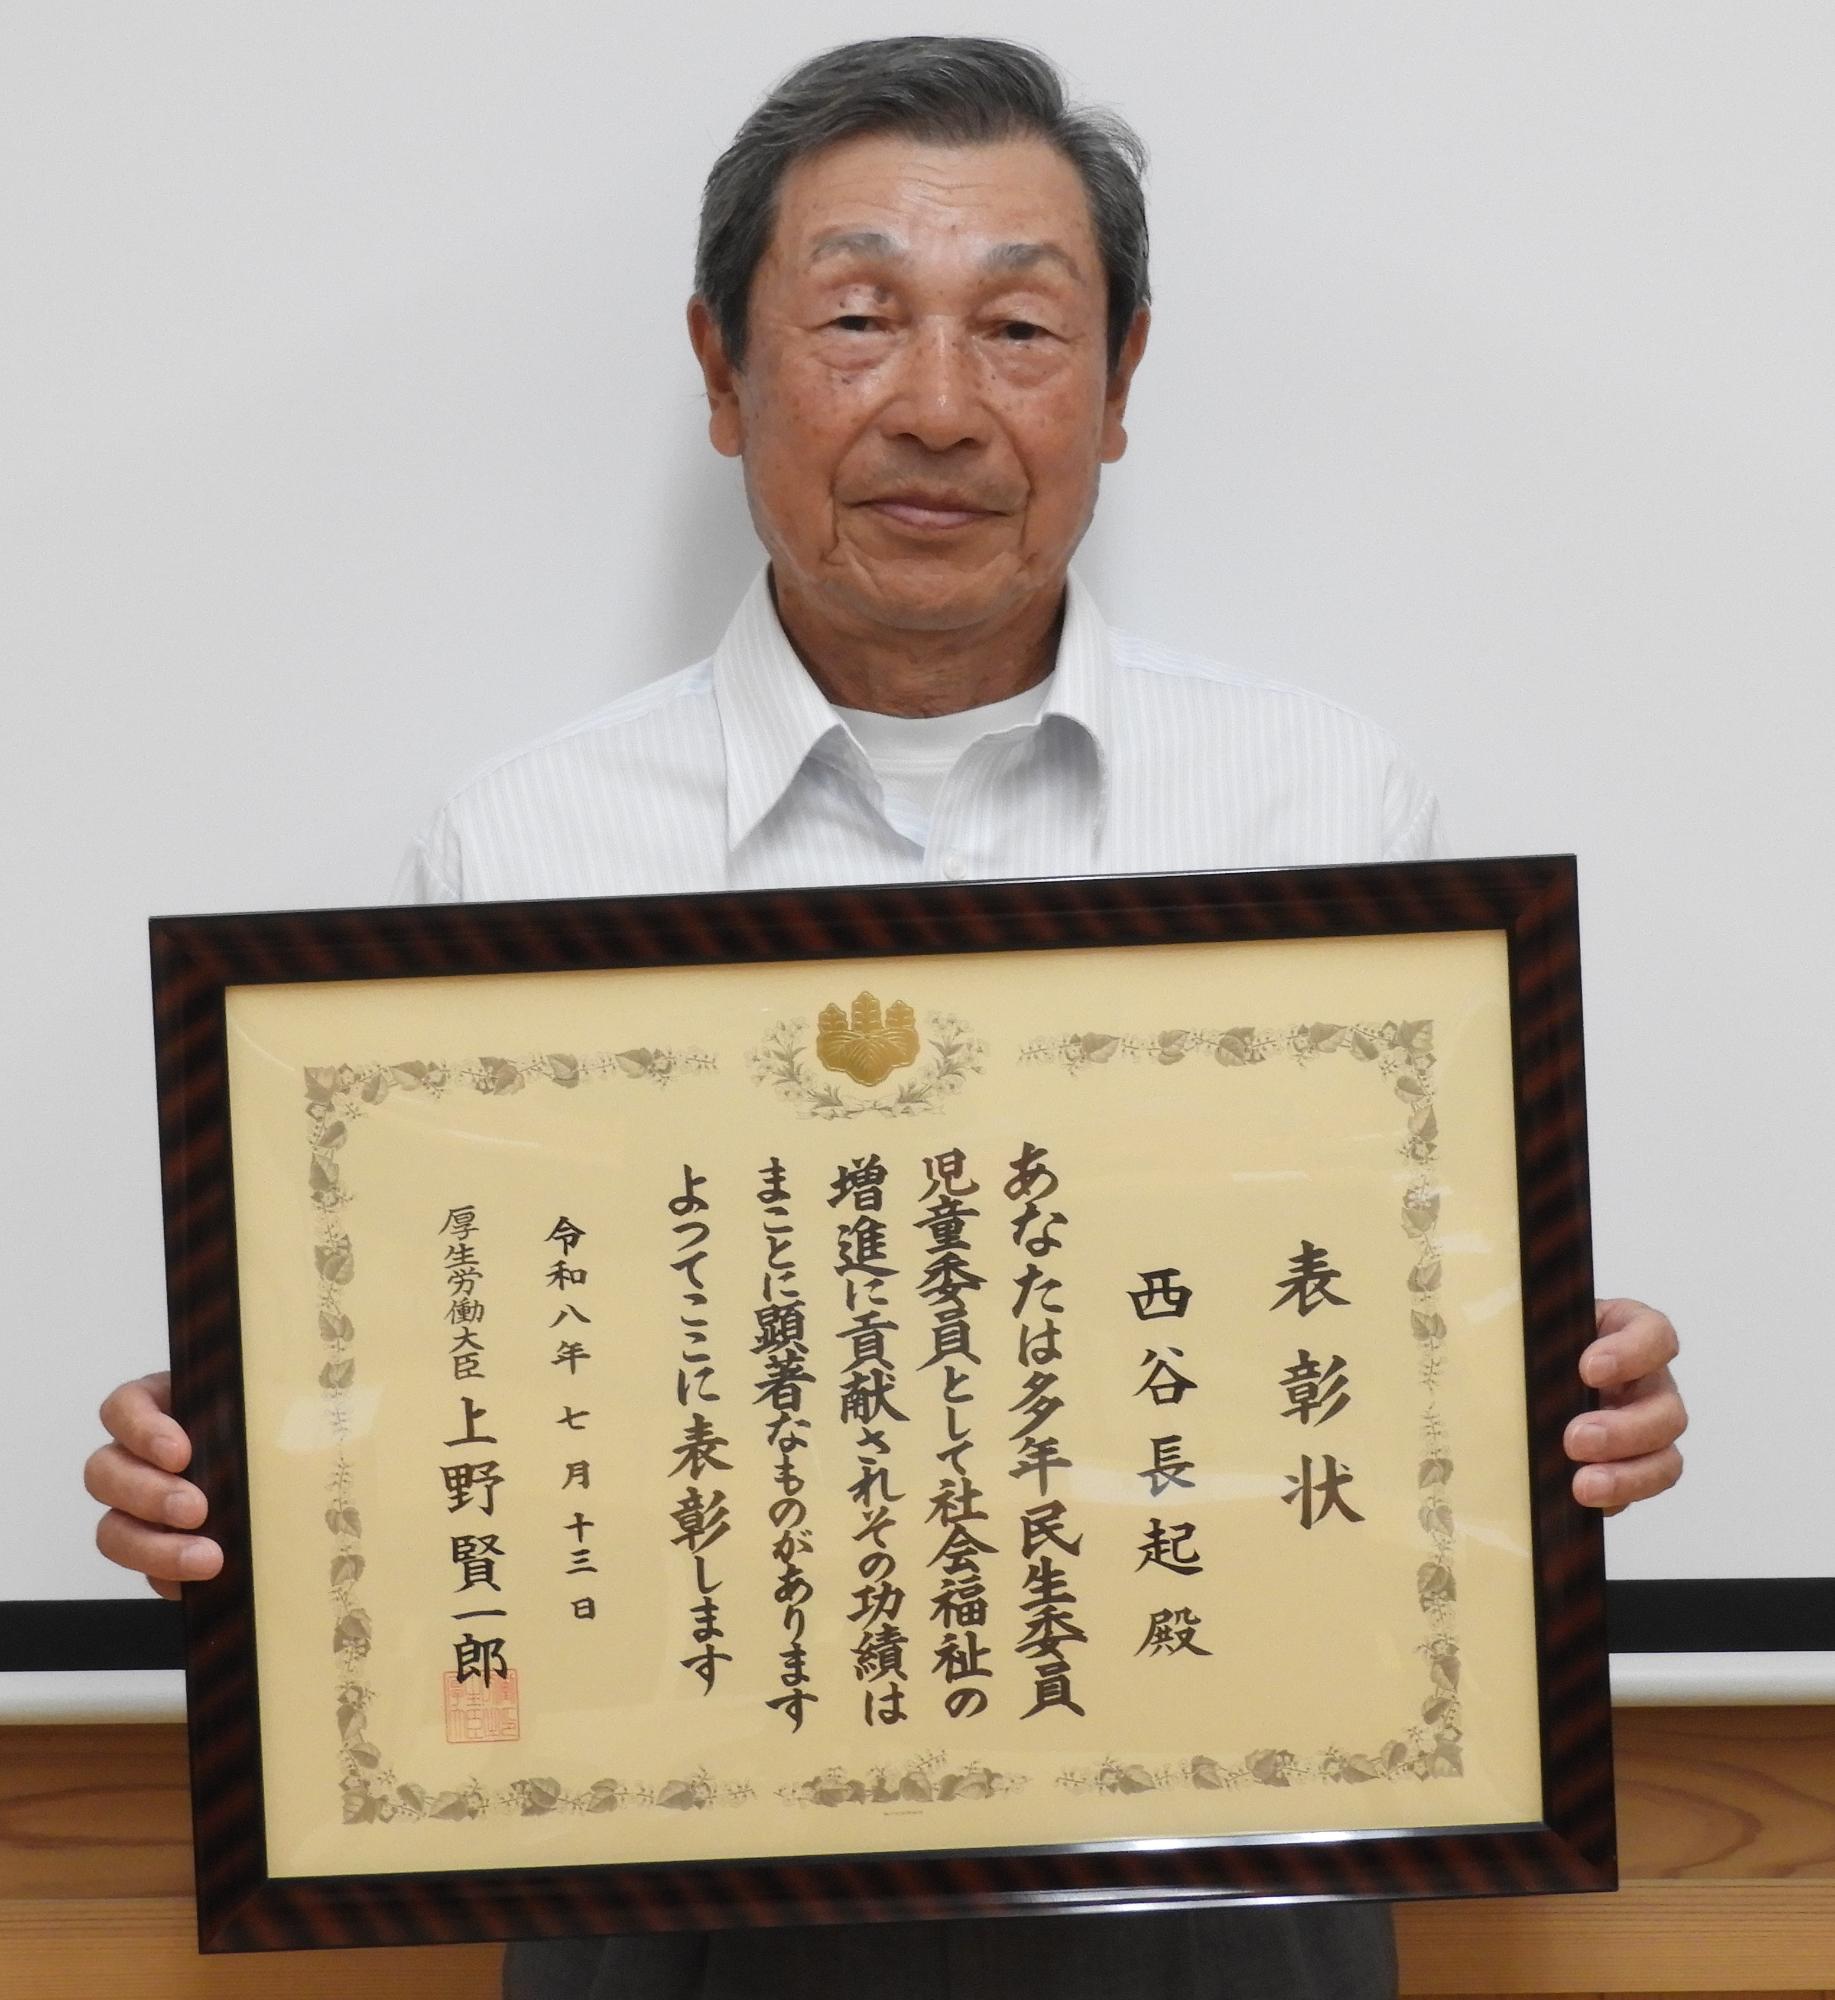 表彰状
西谷長起殿
あなたは多年民生委員
児童委員として社会福祉の
増進に貢献されその功績は
まことに顕著なものがあります
よつてここに表彰します
令和八年七月十三日
厚生労働大臣 上野賢一郎